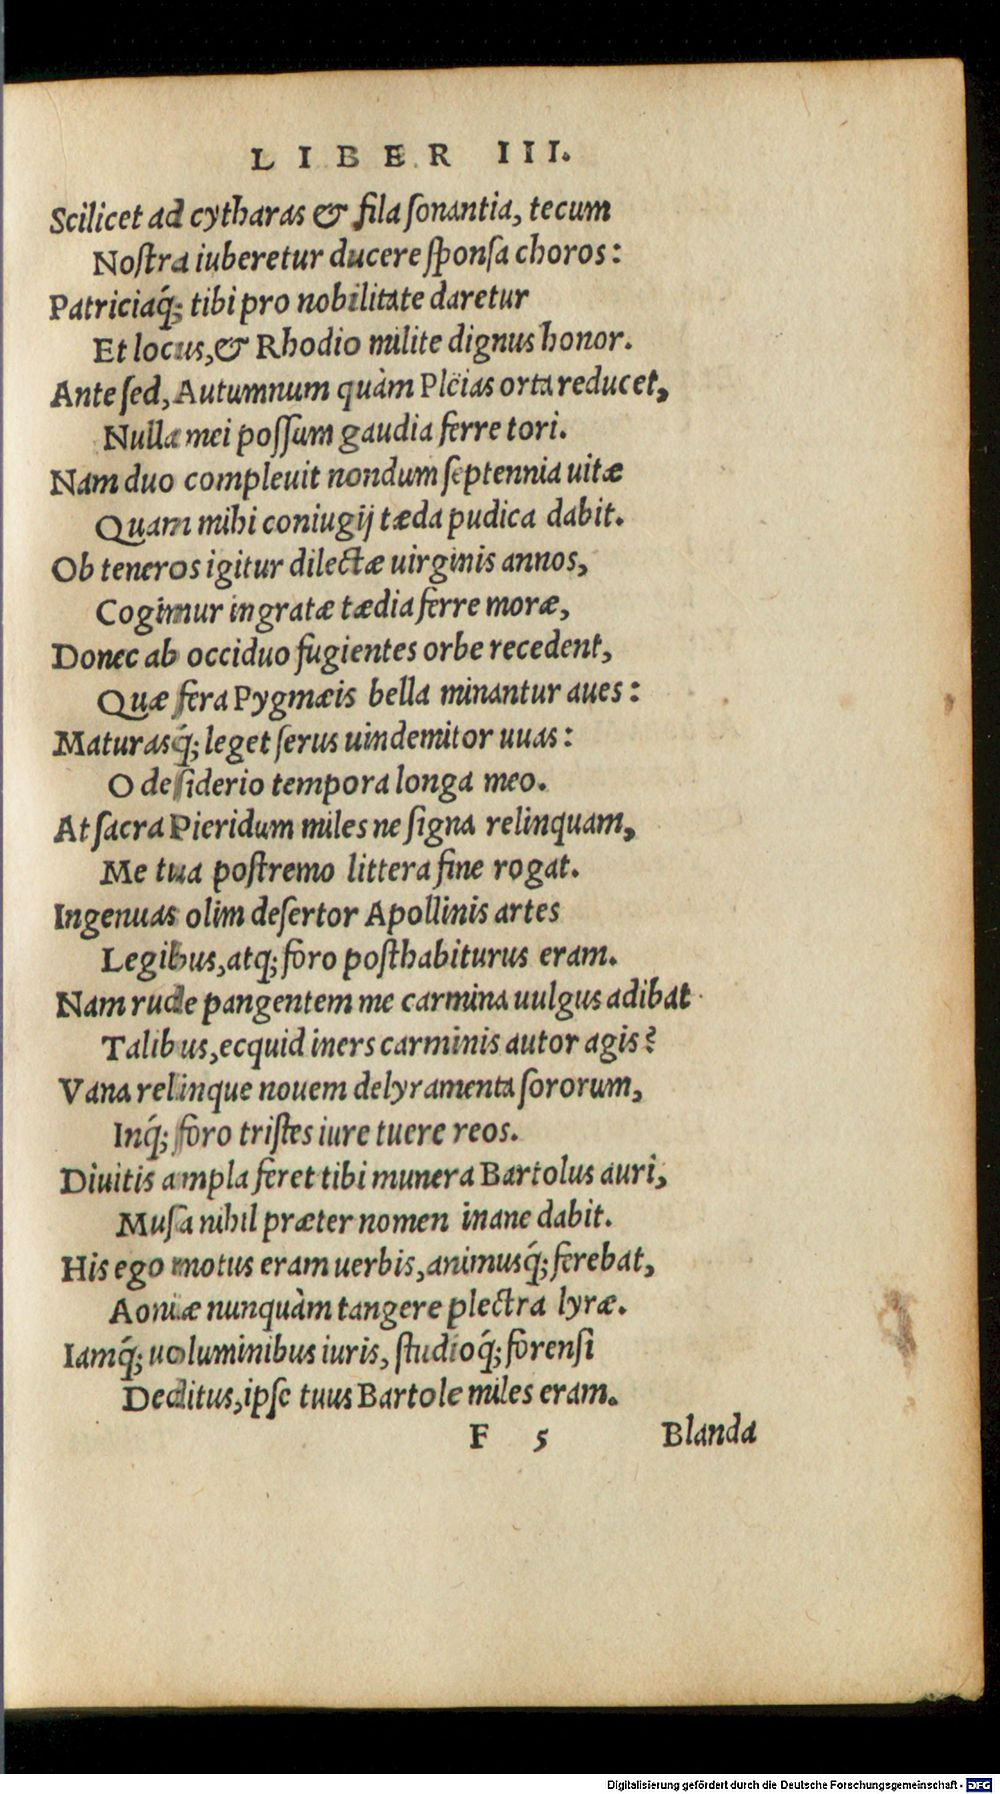 LIBER III.
Scilicet ad cytharas & fila ſonantia, tecum
Noſtra iuberetur ducere ſponſa choros:
Patriciaq́; tibi pro nobilitate daretur
Et locus, & Rhodio milite dignus honor.
Ante ſed, Autumnum quàm Pleias orta reducet,
Nulla mei poſſum gaudia ferre tori.
Nam duo compleuit nondum ſeptennia uitæ
Quam mihi coniugij tæda pudica dabit.
Ob teneros igitur dilectæ uirginis annos,
Cogimur ingratæ tædia ferre moræ,
Donec ab occiduo fugientes orbe recedent,
Quæ fera Pygmæis bella minantur aues:
Maturasq́; leget ſerus uindemitor uuas:
O deſiderio tempora longa meo.
At ſacra Pieridum miles ne ſigna relinquam,
Me tua poſtremo littera fine rogat.
Ingenuas olim deſertor Apollinis artes
Legibus, atq; foro poſthabiturus eram.
Nam rude pangentem me carmina uulgus adibat
Talibus, ecquid iners carminis autor agis?
Vana relinque nouem delyramenta ſororum,
Inq́; foro triſtes iure tuere reos.
Diuitis ampla feret tibi munera Bartolus auri,
Muſa nihil præter nomen inane dabit.
His ego motus eram uerbis, animusq́; ferebat,
Aoniæ nunquàm tangere plectra lyræ.
Iamq́; uoluminibus iuris, ſtudioq́; forenſi
Deditus, ipſe tuus Bartole miles eram.
F 5 Blanda
Digitalisierung gefördert durch die Deutsche Forschungsgemeinschaft - DFG